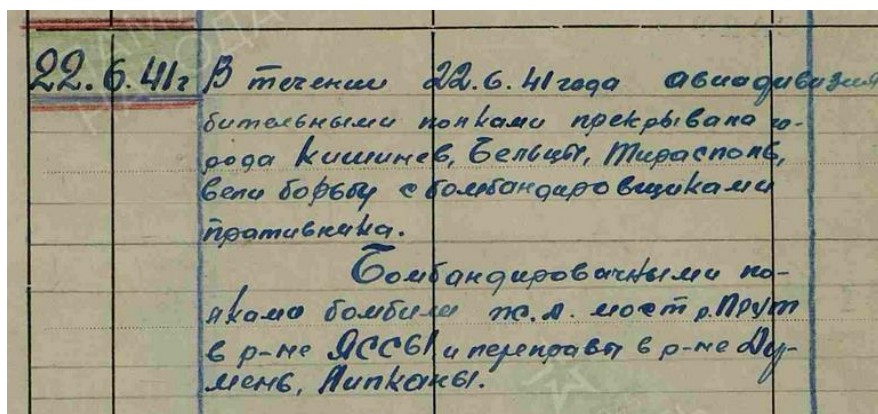 22.6.41г В течении 22.6.41 года авиадивизия
бительными полками прекрывала го-
рода Кишинев, Бельцы, Тирасполь,
вели борьбу с бомбандировщиками
пративника.
Бомбандировачными по-
лками бомбили ж.д. мост р. Прут
в р-не ЯССЫ и переправы в р-не Ду-
мень, Липканы.